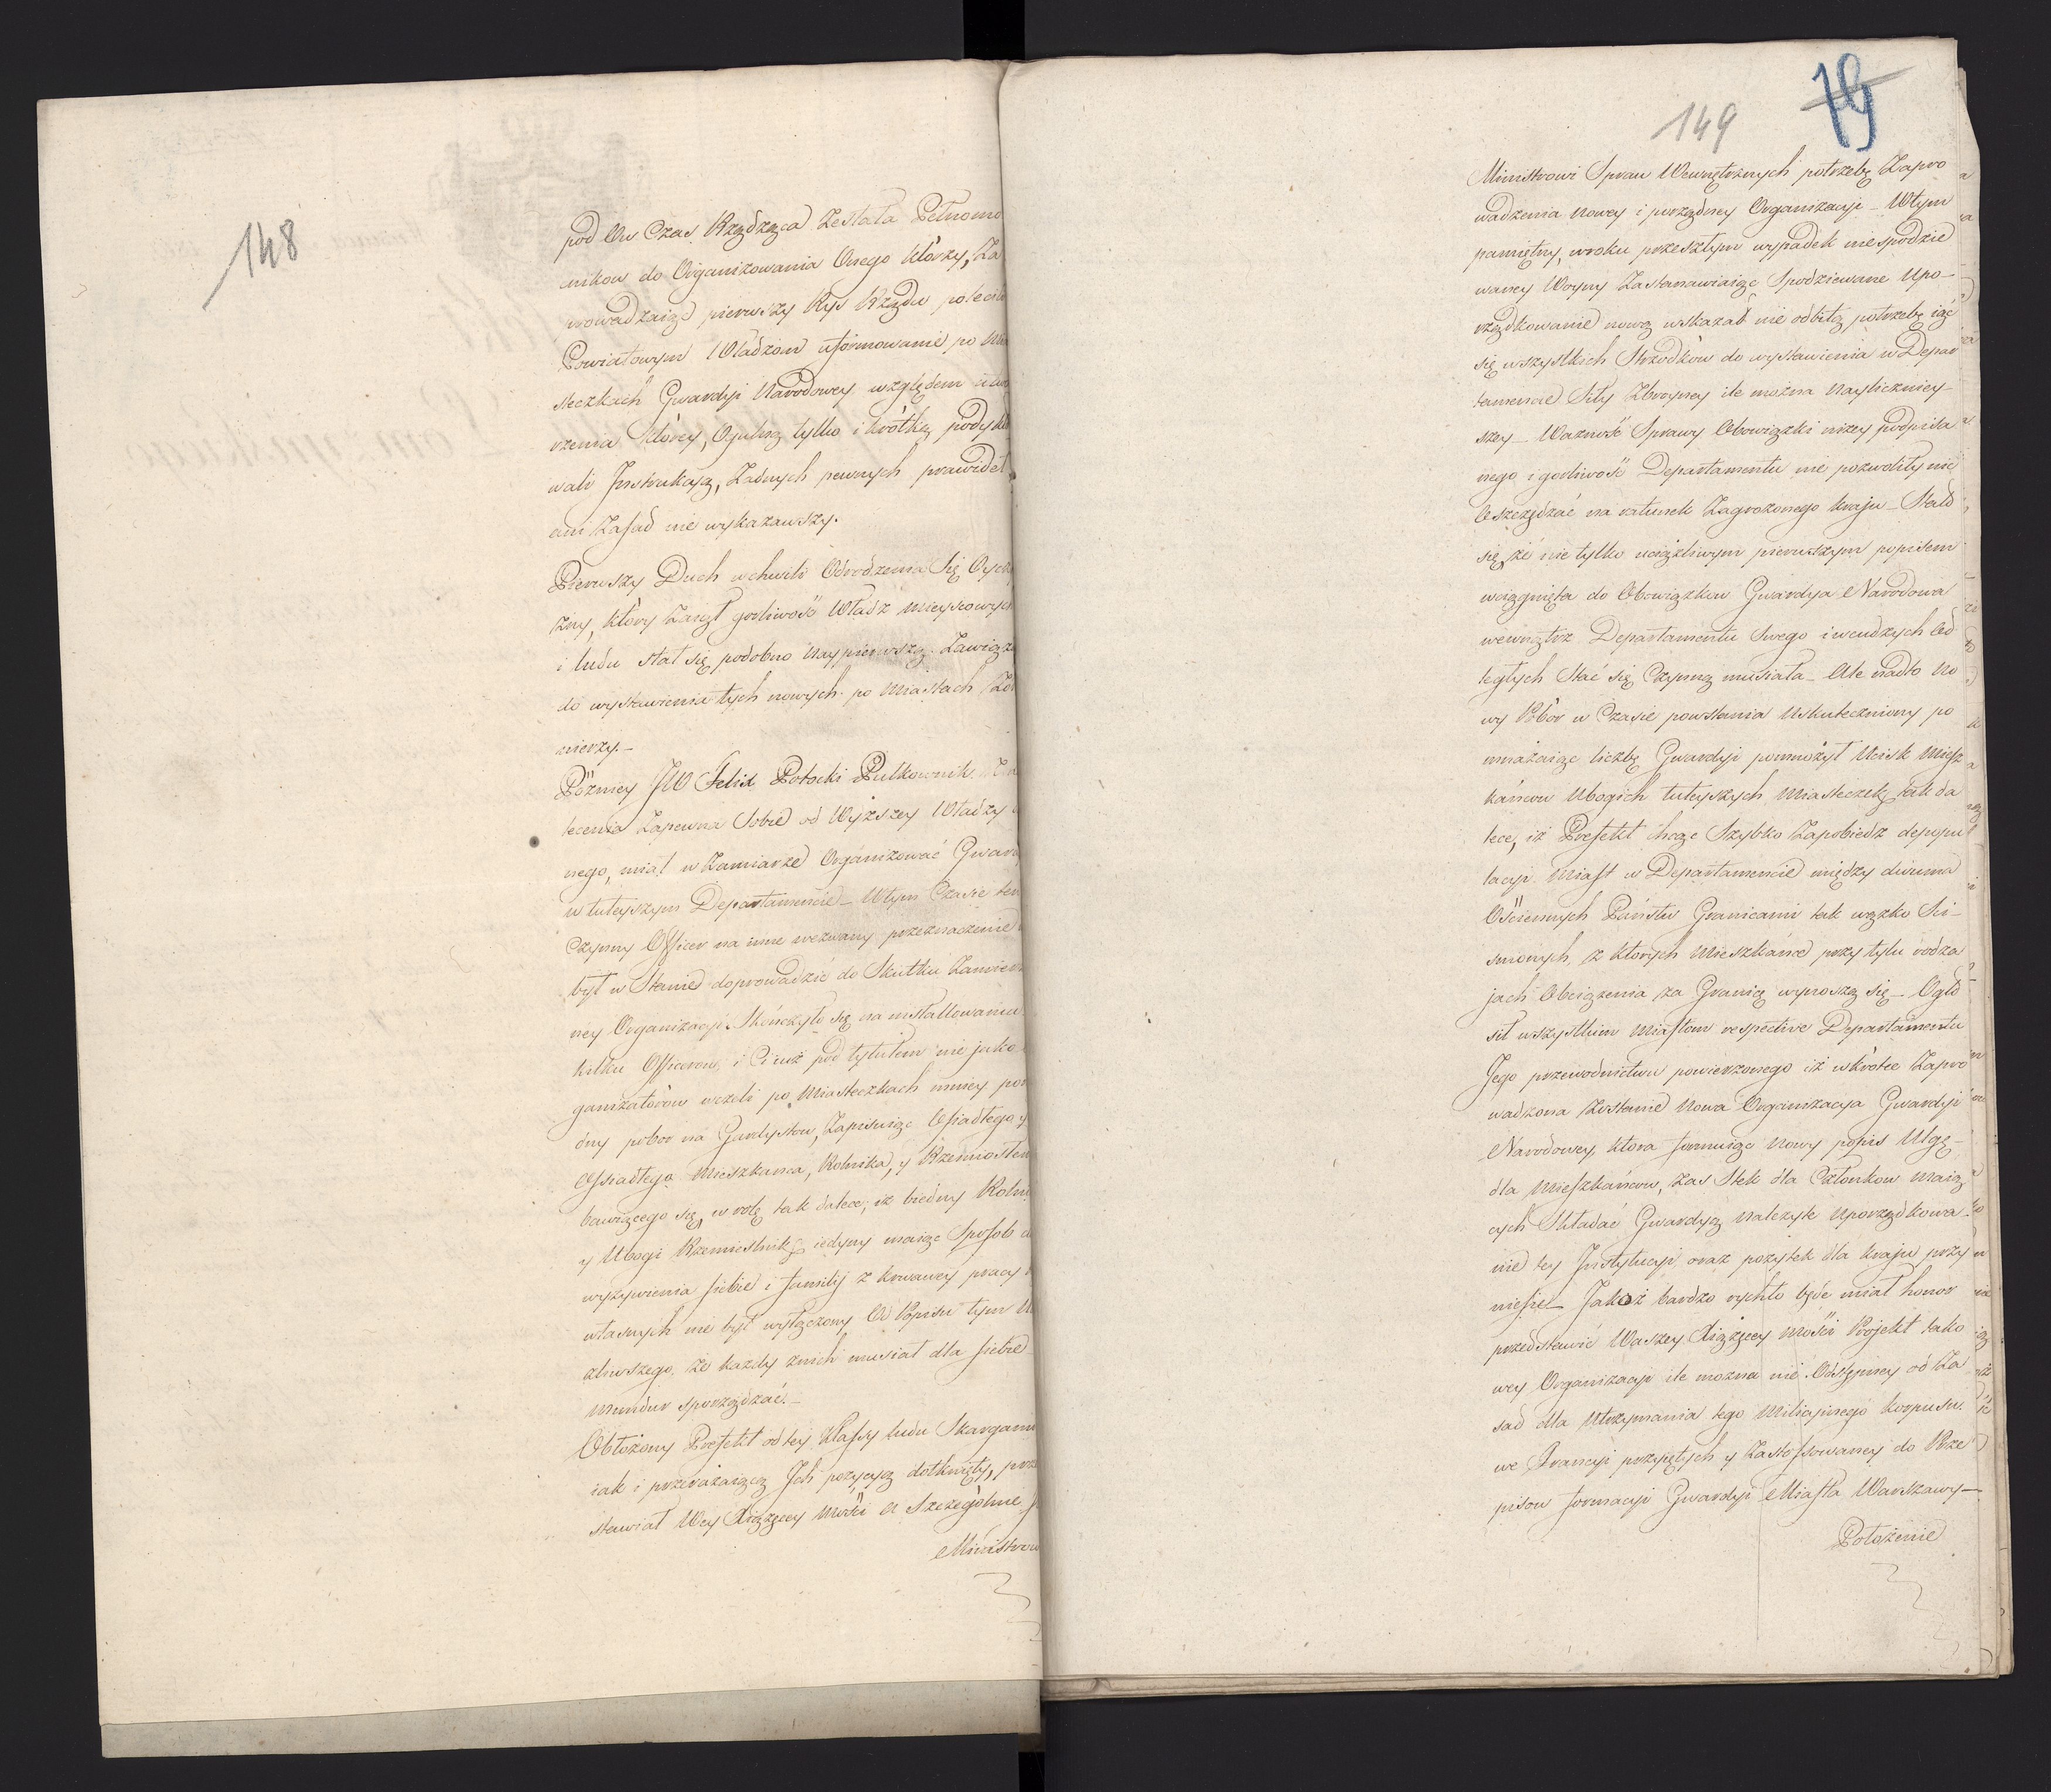 148
pod Ow Czas Rządząca Zesłała Pełnomo
cnikow do Organizowania Onego którzy, Za
prowadzaiąc pierwszy Rys Rządu polecili
Powiatowym Władzom uformowanie po Mia
steczkach Gwardyi Narodowey względem utwo
rzenia którey, Ogulną tylko i krótką podykto
wali Instrukcyą, Żadnych pewnych prawideł
ani Zasad nie wykazawszy.
Pierwszy Duch w chwili Odrodzenia Się Oyczy
zny, który Zaiął gorliwość Władz mieyscowych
i ludu stał się podobno naypierwszą Zawiązką
do wystawienia tych nowych po Miastach Żoł
nierzy.–
Pözniey JW Felix Potocki Pułkownik
lecenia Zapewna Sobie od Wyższey Władzy
nego, miał w Zamiarze Organizować Gward
w tuteyszym Departamencie – W tym Czasie ten
Czynny Officer na inne wezwany przeznaczenie
był w Stanie doprowadzić do Skutku Zamierzo
ney Organizacyi. Skończyło się na installowaniu
kilku Officerow, i Ci iuż pod tytułem nie jako
ganizatörow wzeli po Miasteczkach mniey po
dny pobor na Gardystow, Zapisuiąc Osiadłego y
Ossiadłego Mieszkanca, Rolnika, y Rzemiosłem
bawiącego się, w rolę tak dalece, iż biedny Rolnik
y Ubogi Rzemieslnik, iedyny maiąc Sposob
wyżywienia siebie i familij z krwawey pracy
własnych nie był wyłączony Od Popisu tym
zliwszego, że każdy znich musiał dla siebie
mundur sporządzać.–
Obłożony Prefekt od tey Klassy ludu Skargami
iak i przerażaiącą Ich pozycyą dotknięty, prze
stawiał Wey Xiążęcey Mości a Szczegòlnie J
Ministrow
149
79
Ministrowi Spraw Wewnętrznych potrzebę Zapro
wadzenia nowey i porządney Organizacyi – W tym
pamiętny, w roku przeszłym wypadek niespodzie
waney Woyny Zastanawiaiąc Spodziewane Upo–
rządkowanie nową wskazał nie odbitą potrzebę iąć
się wszystkich Strzodkow do wystawienia w Depar
tamencie Siły Zbroyney ile można nayliczniey–
szey – Ważność Sprawy Obowiązki niżey podpisa
nego i gorliwość Departamentu nie pozwoliły nic
Oszczędzać na ratunek Zagrożonego kraju – Stało
się, że nie tylko uciążliwym pierwszym popisem
wciągnięta do Obowiązkow Gwardya Narodowa
wewnątrz Departamentu Swego i w cudzych Od
ległych Stać się Czynną musiała – Ale nadto no
wy Pobòr w Czasie powstania uskuteczniony po
mnażaiąc liczbę Gwardyi pomnożył Ucisk miesz
kańcow Ubogich tuteyszych Miasteczek, tak da
lece, iż Prefekt chcąc Szybko Zapobiedz depopu
lacyi Miast w Departamencie między dwiema
Osciennych Państw Granicami tak wązko Sci–
snionych, z ktorych Mieszkance przy tylu rodza
jach Obciążenia za Granicę wynoszą się – Ogło
sił wszystkim Miastom respective Departamentu
Jego przewodnictwu powierzonego iż wkrótce Zapro
wadzona Zostanie Nowa Organizacya Gwardyi
Narodowey, ktora formuiąc nowy popis Ulgę–
dla Mieszkańcow, Zas Stek dla Członkow maią
cych Składać Gwardyą należyte uporządkowa–
nie tey Instytucyi, oraz pożytek dla kraju przy
niesie – Jakoż bardzo rychło będę miał honor
przedstawić Waszey Xiążęcey Mości Projekt tako
wey Organizacyi ile można nie Odstępney od Za
sad dla Utrzymania tego Milicyinego korpusu
we Francyi przyiętych y Zastossowaney do Prze
pisow formacyi Gwardyi Miasta Warszawy–
Położenie